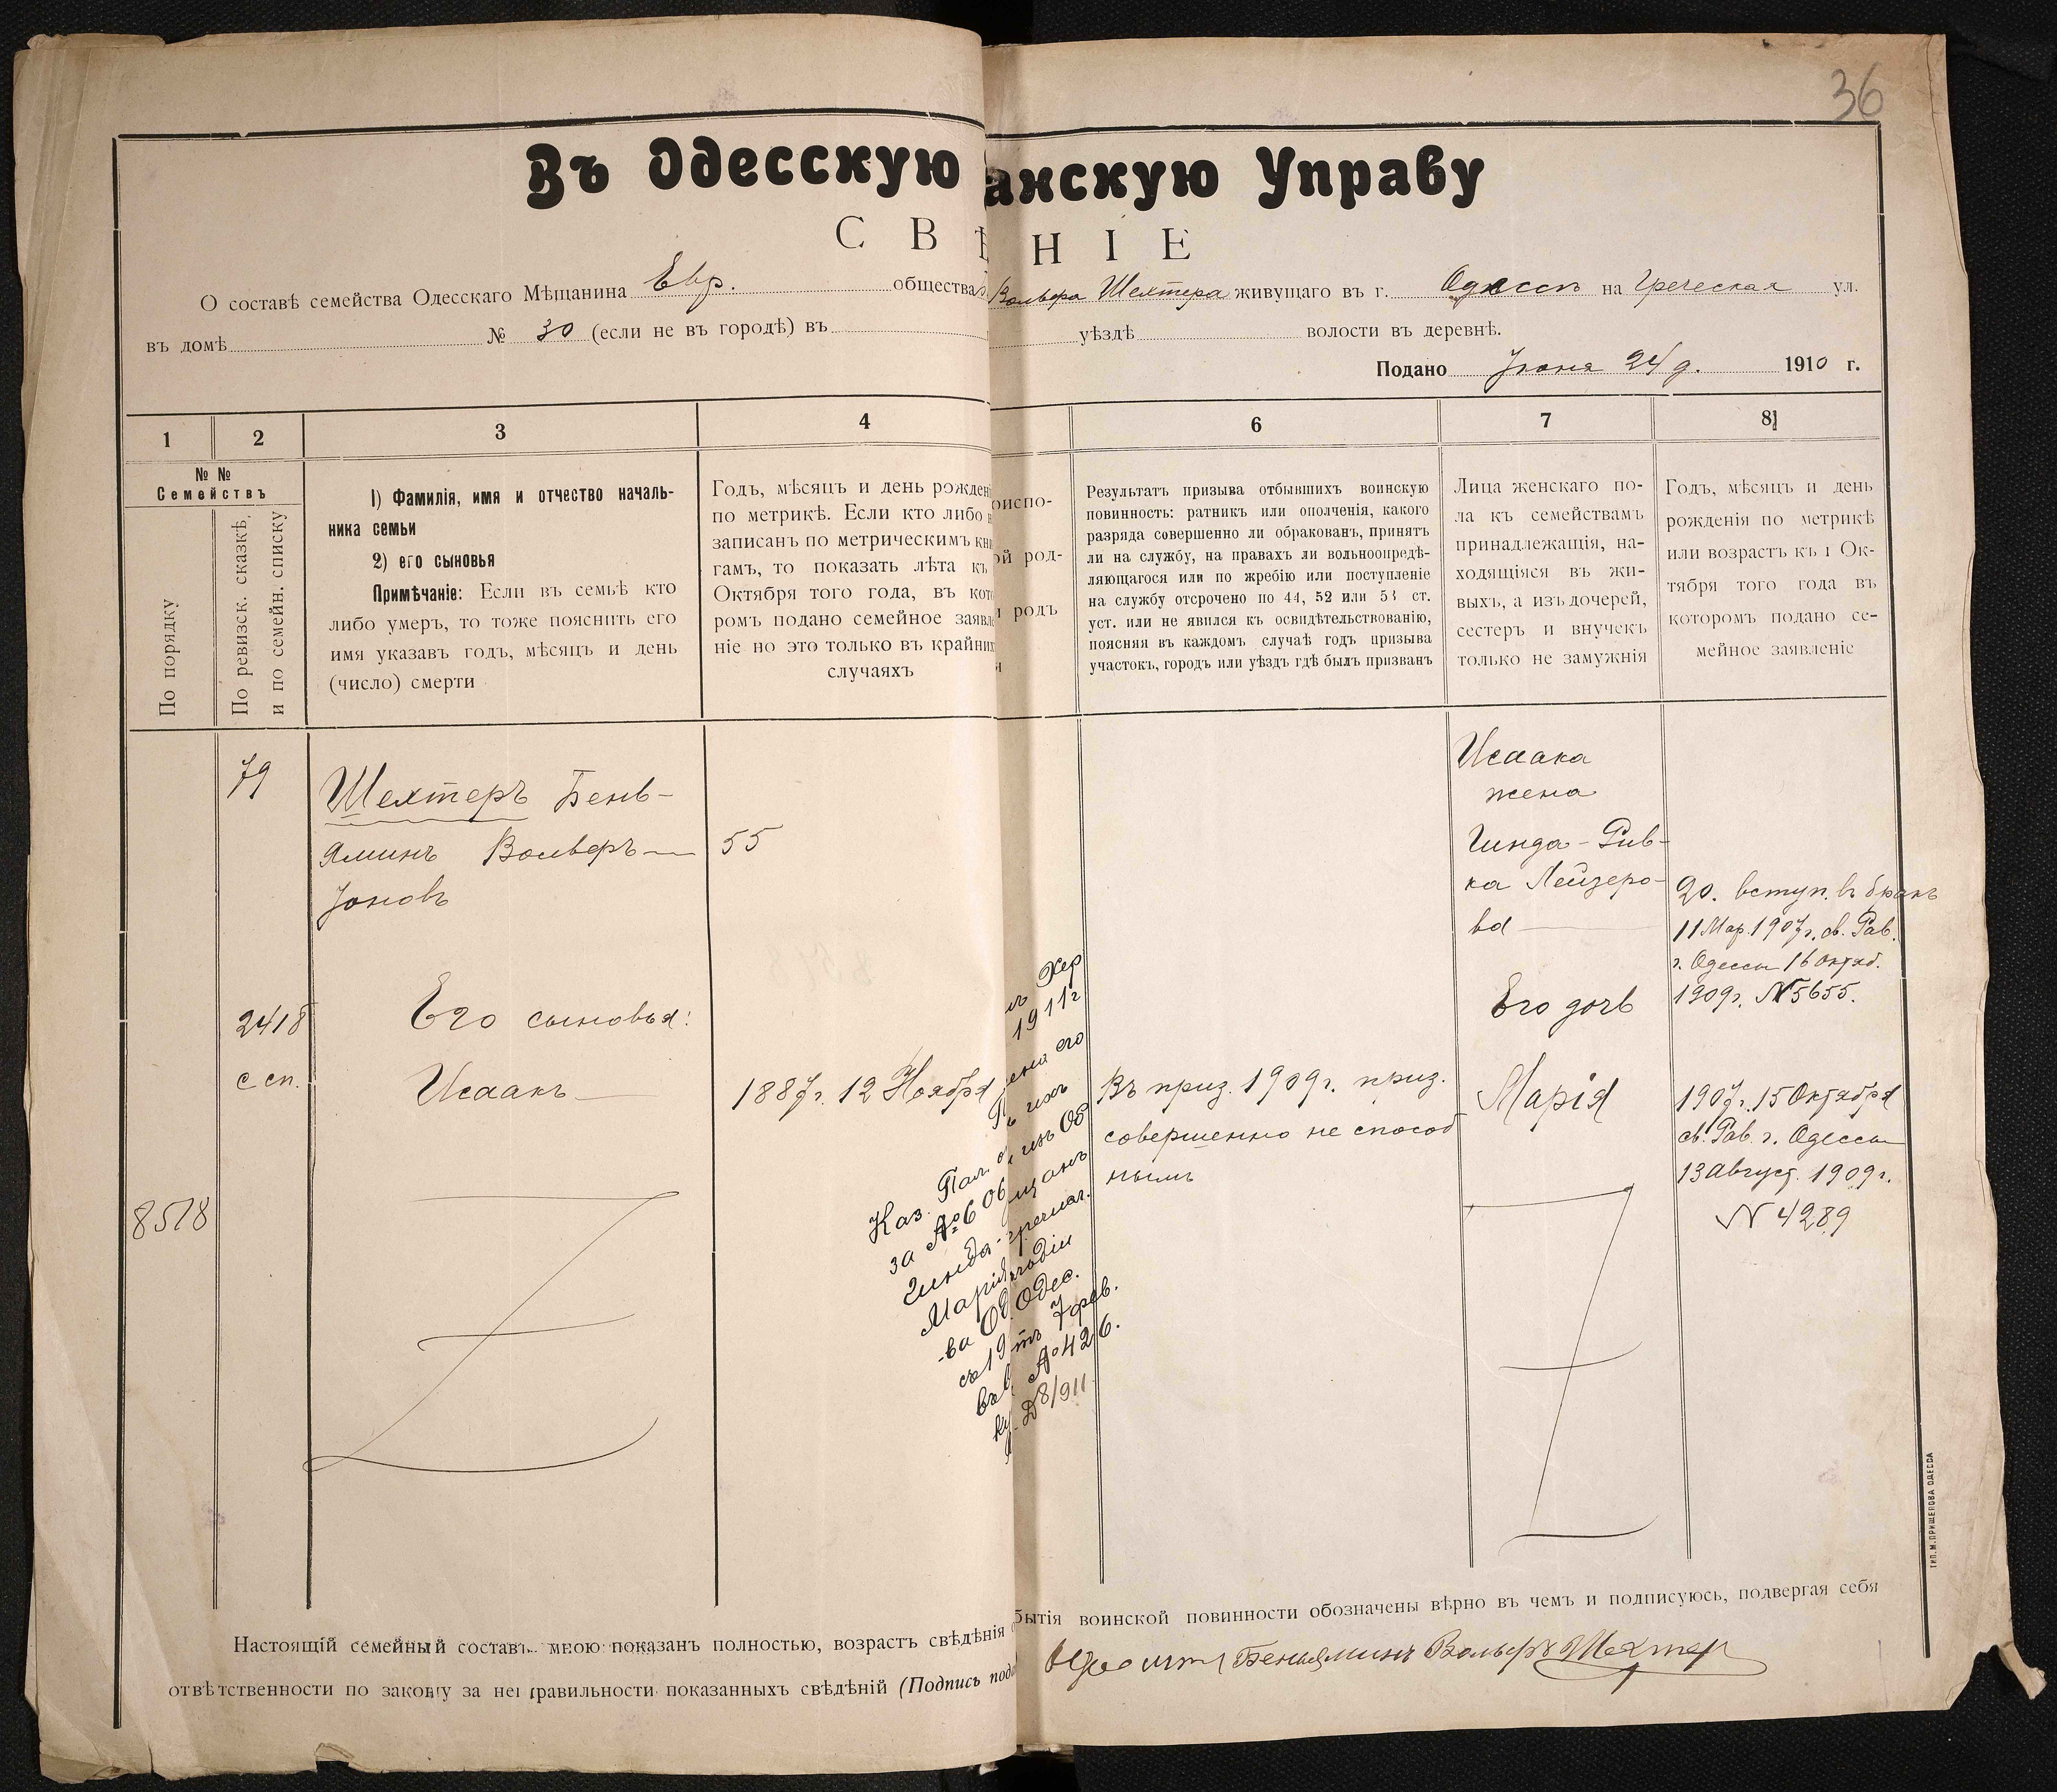 36
Въ Одесскую анскую Управу
С В Ѣ Н І Е
О составѣ семейства Одесскаго Мѣщанина Евр. общества Вольфа Шехтера живущаго въ г. Одессѣ на Греческая ул.
въ домѣ № 30 (если не въ городѣ) въ уѣздѣ волости въ деревнѣ.
Подано Іюня 24 д. 1910 г.
1 2 3 4 6 7 8
№ №
Семействъ
По порядку
По ревизск. сказкѣ,
и по семейн. списку
1) Фамилія, имя и отчество началь-
ника семьи
2) его сыновья
Примѣчаніе: Если въ семьѣ кто
либо умеръ, то тоже пояснить его
имя указавъ годъ, мѣсяцъ и день
(число) смерти
Годъ, мѣсяцъ и день рожден
по метрикѣ. Если кто либо н
записанъ по метрическимъ кни
гамъ, то показать лѣта къ
Октября того года, въ кото
ромъ подано семейное заявле
ніе но это только въ крайних
случаяхъ
риспо-
ой род-
и родъ
Результатъ призыва отбывшихъ воинскую
повинность: ратникъ или ополченія, какого
разряда совершенно ли обракованъ, принятъ
ли на службу, на правахъ ли вольноопредѣ-
ляющагося или по жребію или поступленіе
на службу отсрочено по 44, 52 или 53 ст.
уст. или не явился къ освидѣтельствованію,
поясняя въ каждомъ случаѣ годъ призыва
участокъ, городъ или уѣздъ гдѣ былъ призванъ
Лица женскаго по-
ла къ семействамъ
принадлежащія, на-
ходящіяся въ жи-
выхъ, а изъ дочерей,
сестеръ и внучекъ
только не замужнія
Годъ, мѣсяцъ и день
рожденія по метрикѣ
или возрастъ къ 1 Ок-
тября того года въ
которомъ подано се-
мейное заявленіе
79
Шехтеръ Бень-
яминъ Вольфъ—
Іоновъ
55
2418
с сп.
Его сыновья:
Исаакъ
1887 г. 12 Ноября
8578
Въ приз. 1909 г. приз.
совершенно не способ
нымъ
Исаака
жена
Гинда-Рив-
ка Лейзеро-
ва
20. вступ. въ бракъ
11 Мар. 1907 г. св. Рав.
г. Одессы 16 Октяб.
1909 г. N 5655.
Его дочь
Марія
1907 г. 15 Октября
св. Рав. г. Одессы
13 Август. 1909 г.
N 4289
Хер
1911 г
его
Пал.
Каз.
за № 606
Гинда-
Марія
ва Од Одес.
съ 19 7 фев.
№ 426.
Д 8/911
Настоящій семейный составъ мною показанъ полностью, возрастъ свѣдѣнія бытія воинской повинности обозначены вѣрно въ чемъ и подписуюсь, подвергая себя
отвѣтственности по закону за неправильности показанныхъ свѣдѣній (Подпись пода Беньяминъ Вольфъ Шехтер
ТИП. М. ПРИЩЕПОВА ОДЕССА